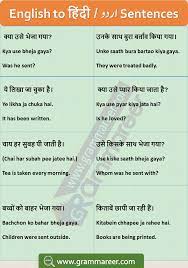 English to हिंदी / اردو Sentences
क्या उसे भेजा गया?
Kya use bheja gaya?
Was he sent?
उनके साथ बुरा बर्ताव किया गया।
Unke saath bura bartao kiya gaya.
They were treated badly.
ये लिखा जा चुका है।
Ye likha ja chuka hai.
It has been written.
क्या उसे प्यार किया जाता है?
Kya use pyar kiya jata hai?
Is he loved?
चाय हर सुबह पी जाती है।
(Chai har subah pee jatee hai.)
Tea is taken every morning.
उसे किसके साथ भेजा गया?
Use kiske saath bheja gaya?
Whom was he sent with?
बच्चों को बाहर भेजा गया।
Bachchon ko bahar bheja gaya.
Children were sent outside.
किताबें छापी जा रही हैं।
Kitabein chhappe ja rahee hai.
Books are being printed.
www.grammareer.com